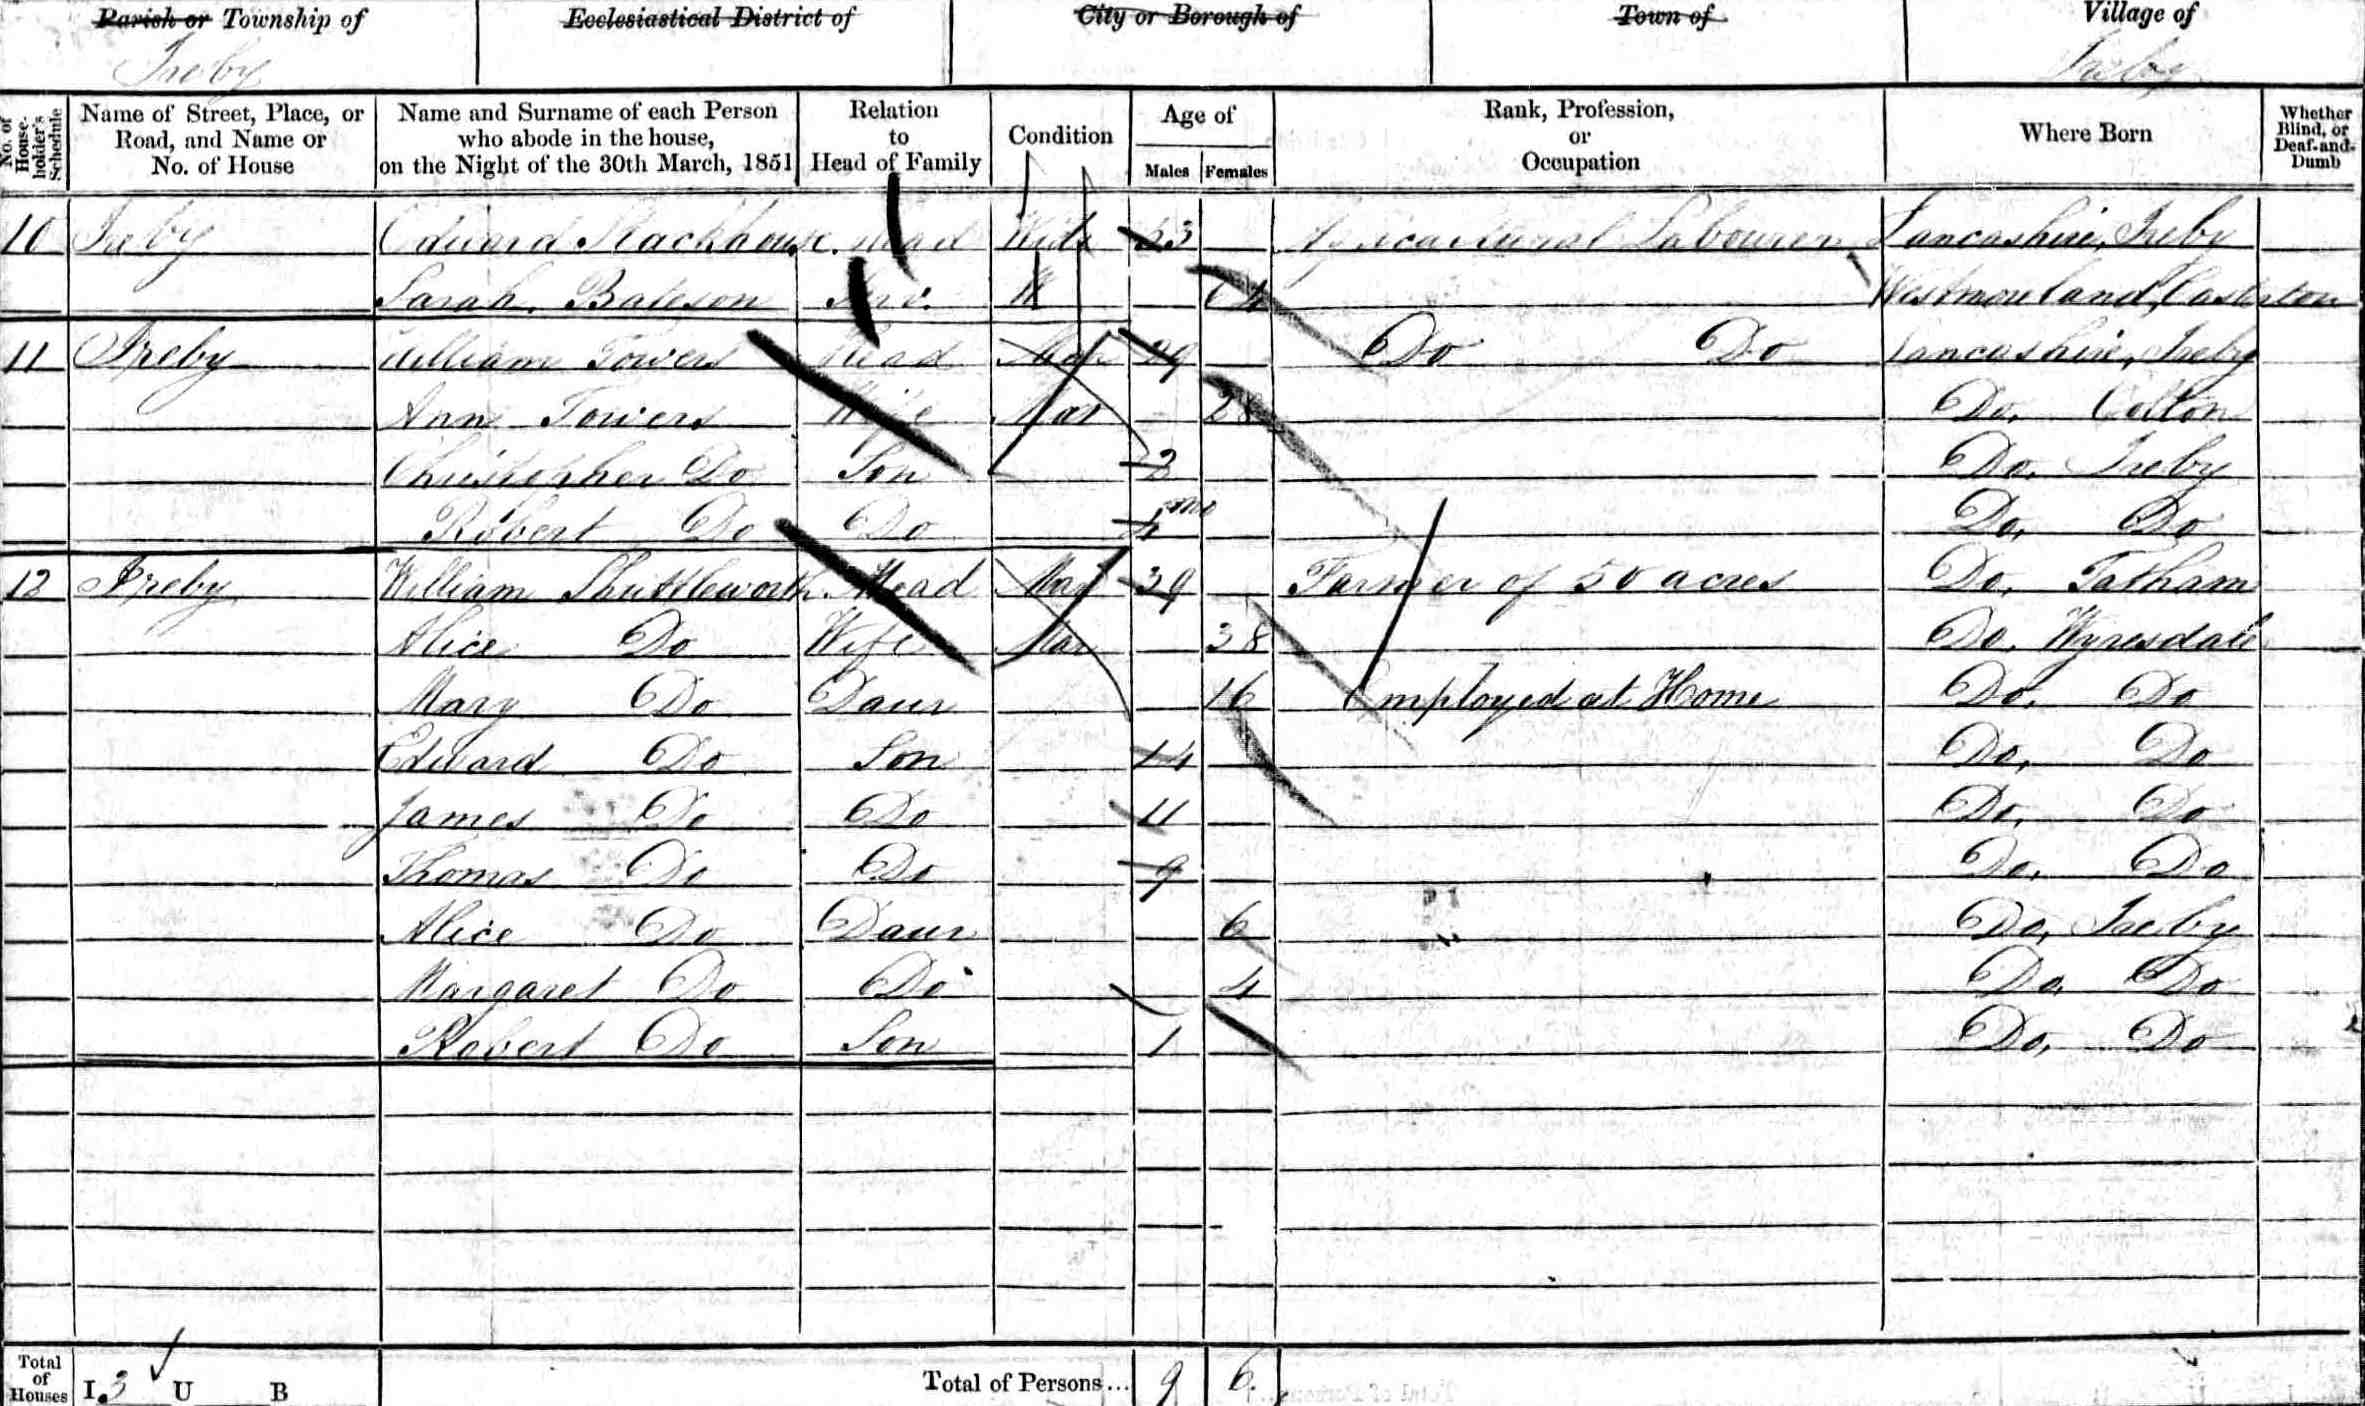 Parish or Township of Ecclesiastical District of City or Borough of Town of Village of
Ireby Ireby
No. of House-holder's Schedule Name of Street, Place, or Road, and Name or No. of House Name and Surname of each Person who abode in the house, on the Night of the 30th March, 1851 Relation to Head of Family Condition Age of Males Females Rank, Profession, or Occupation Where Born Whether Blind, or Deaf-and-Dumb
10 Ireby Edward Stackhouse Head Widr 53 Agricultural Labourer Lancashire, Ireby
Sarah Bateson W Westmoreland, Casterton
11 Ireby William Towers Head Mar 29 Do Do Lancashire, Ireby
Ann Towers Wife Mar 28 Do, Colton
Christopher Do Son 2 Do, Ireby
Robert Do Do 4 mo Do, Do
12 Ireby William Shuttleworth Head Mar 39 Farmer of 50 acres Do, Tatham
Alice Do Wife Mar 38 Do, Wyresdale
Mary Do Daur 16 Employed at Home Do, Do
Edward Do Son 14 Do, Do
James Do Do 11 Do, Do
Thomas Do Do 9 Do, Do
Alice Do Daur 6 Do, Ireby
Margaret Do Do 4 Do, Do
Robert Do Son 1 Do, Do
Total of Houses I 3 U B Total of Persons... 9 6